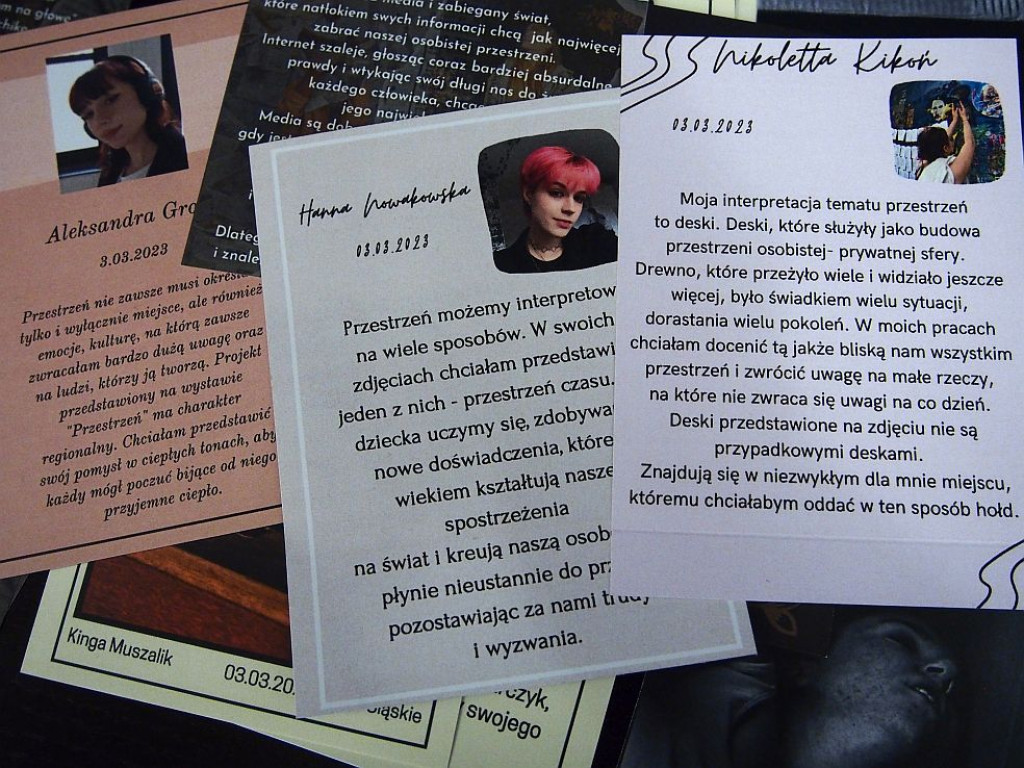 na głowe"
Aleksandra
3.03.2023
Przestrzeń nie zawsze musi
tylko i wyłącznie miejsce, ale również
emocje, kulturę, na którą zawsze
zwracałam bardzo dużą uwagę oraz
na ludzi, którzy ją tworzą. Projekt
przedstawiony na wystawie
"Przestrzeń" ma charakter
regionalny. Chciałam przedstawić
swój pomysł w ciepłych tonach, aby
każdy mógł poczuć bijące od niego
przyjemne ciepło.
i zabiegany świat,
które natłokiem swych informacji chcą jak najwięcej
zabrać naszej osobistej przestrzeni.
Internet szaleje, głosząc coraz bardziej absurdalne
prawdy i wtykając swój długi nos do
każdego człowieka,
jego
Media są
gdy
i
Hanna Nowakowska
03.03.2023
Przestrzeń możemy
na wiele sposobów. W swoich
zdjęciach chciałam
jeden z nich - przestrzeń czasu.
dziecka uczymy się,
nowe doświadczenia, które
wiekiem kształtują nasze
spostrzeżenia
na świat i kreują naszą
płynie nieustannie do
pozostawiając za nami trudy
i wyzwania.
Nikoletta Kikoń
03.03.2023
Moja interpretacja tematu przestrzeń
to deski. Deski, które służyły jako budowa
przestrzeni osobistej- prywatnej sfery.
Drewno, które przeżyło wiele i widziało jeszcze
więcej, było świadkiem wielu sytuacji,
dorastania wielu pokoleń. W moich pracach
chciałam docenić tą jakże bliską nam wszystkim
przestrzeń i zwrócić uwagę na małe rzeczy,
na które nie zwraca się uwagi na co dzień.
Deski przedstawione na zdjęciu nie są
przypadkowymi deskami.
Znajdują się w niezwykłym dla mnie miejscu,
któremu chciałabym oddać w ten sposób hołd.
Kinga Muszalik
03.03.20
swojego